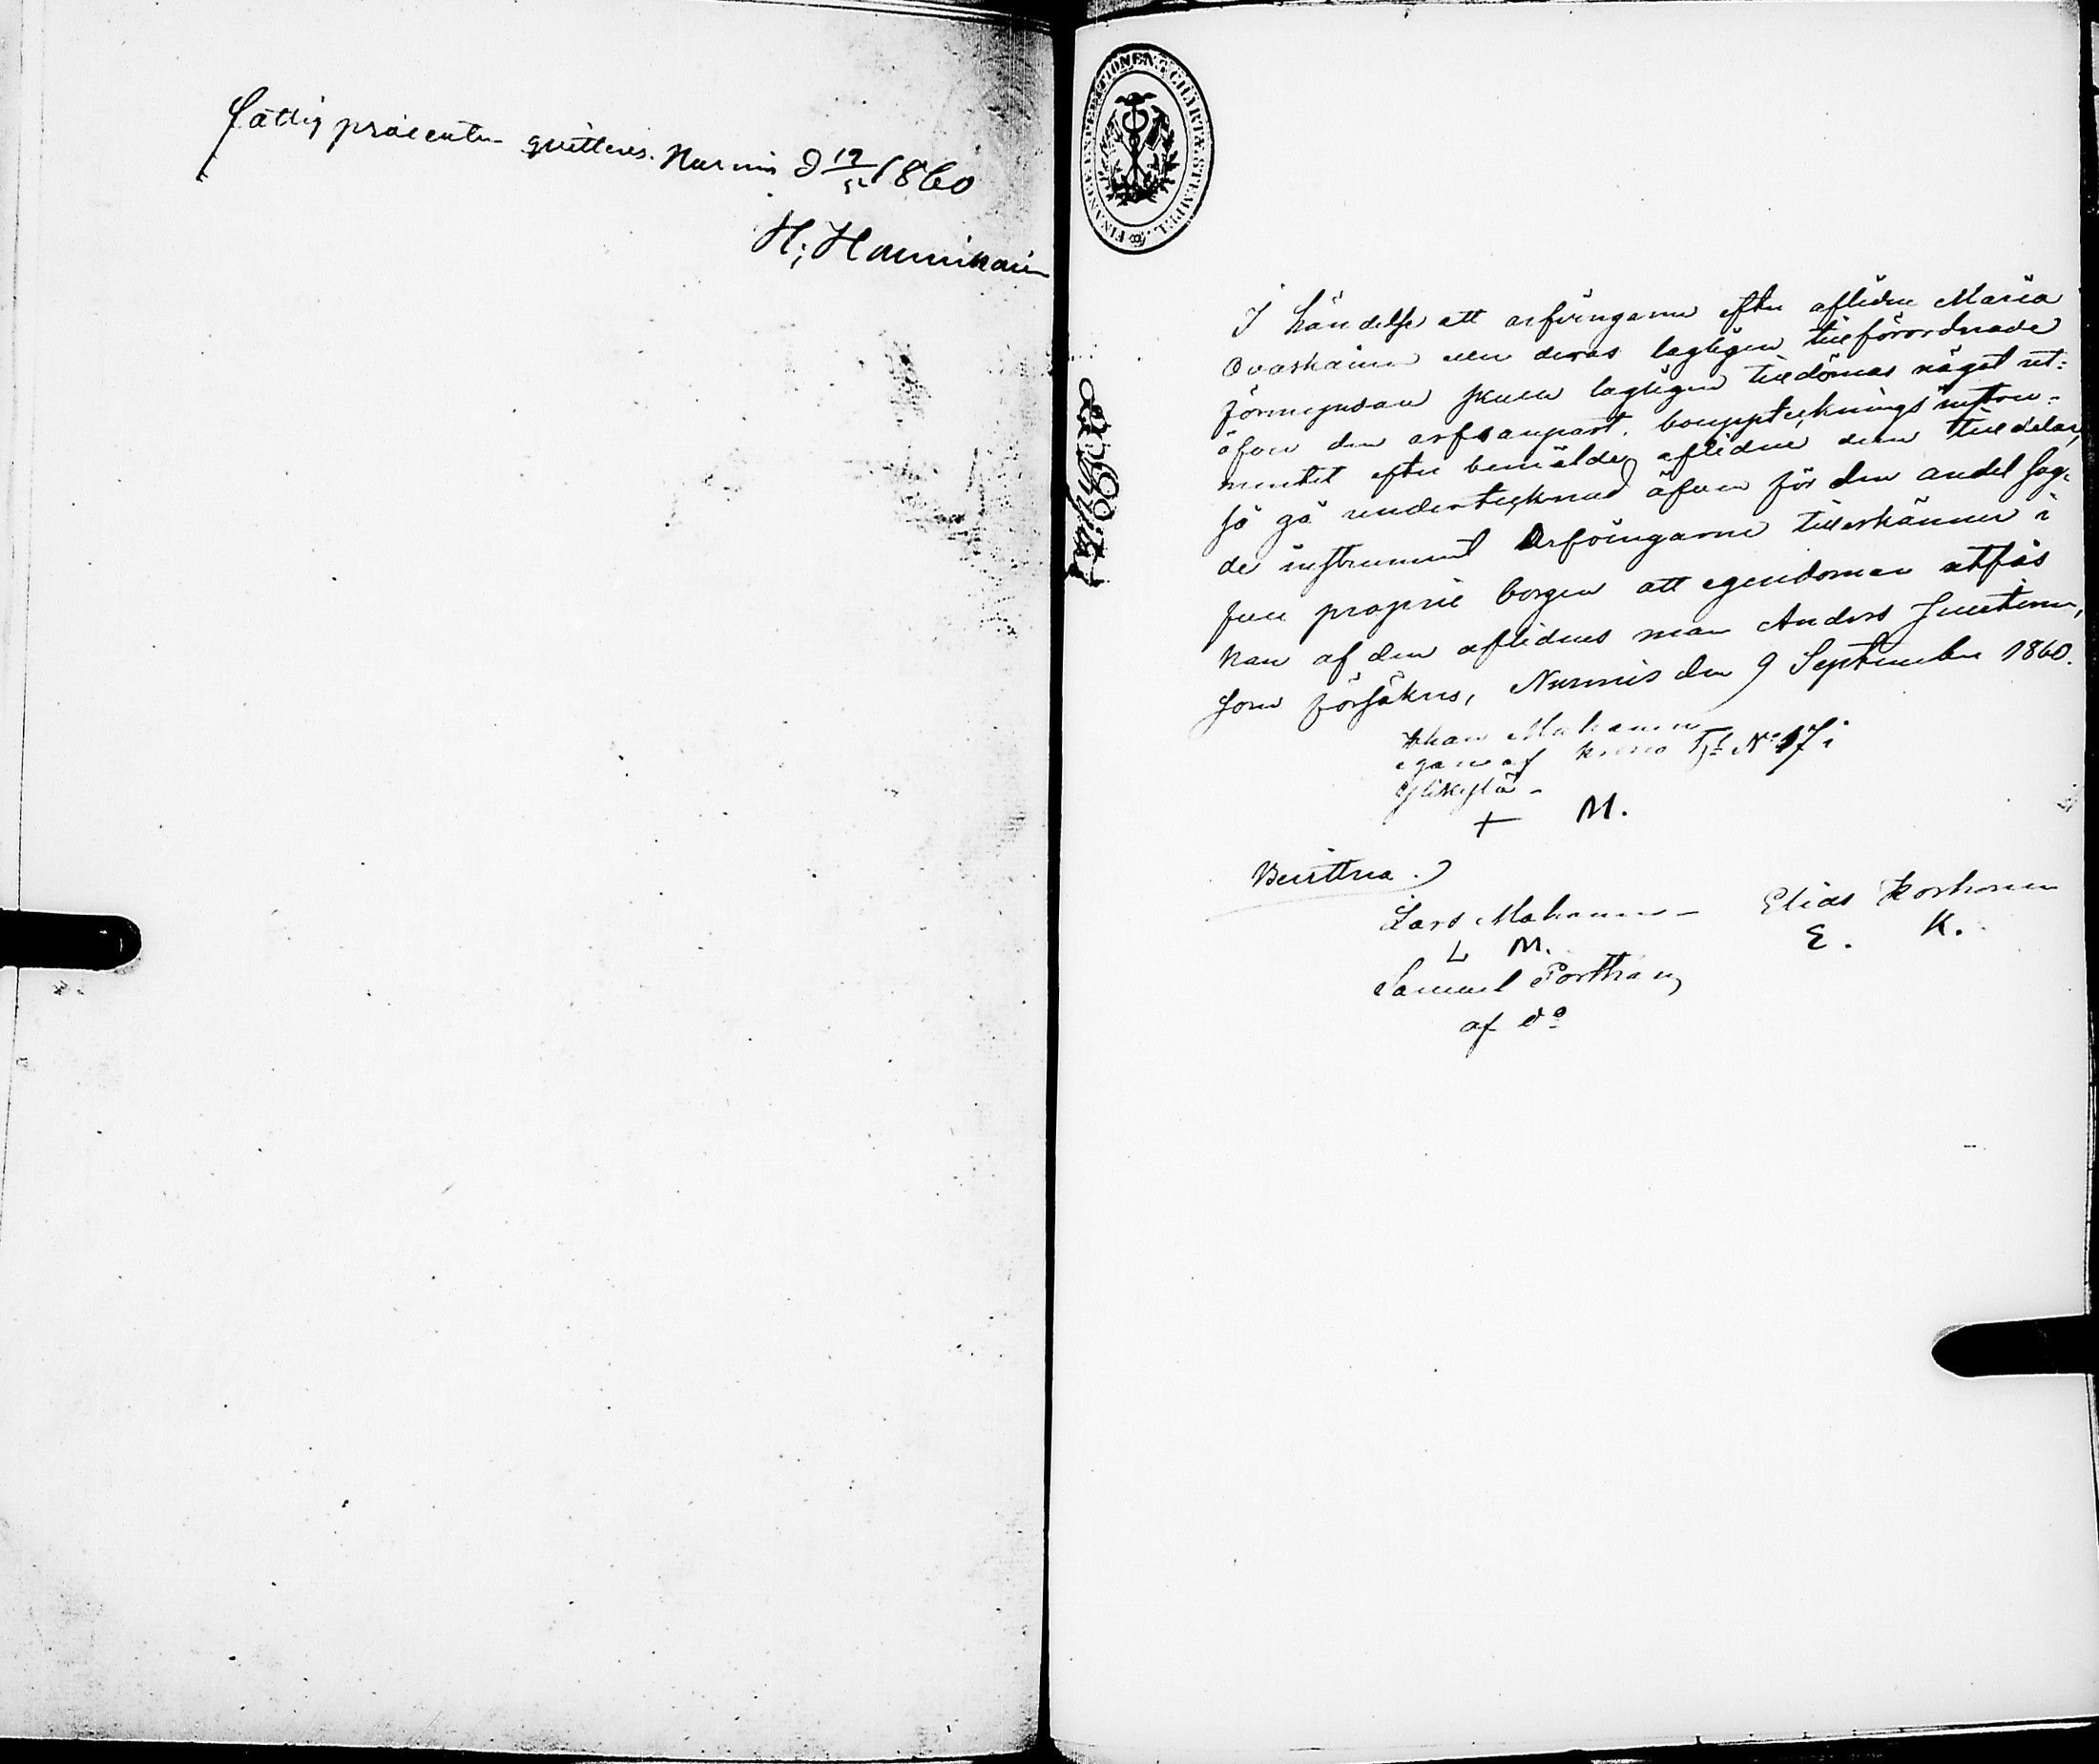 fattig procenten quitteres. Nurmis d 19/12 1860
H; Hannikain
FINANCE EXPEDITIONENS CHARTÆ STEMPEL.
I händelse att arfvingarne efter aflidne Maria
Ovaskainen eller deras lagligen tillförordnade
förmyndare skulle lagligen tilldömas något ut-
öfver den arfsanpart, bouppteckningsinstru-
mentet efter bemälde aflidne dem tilldelar,
så gå undertecknad äfven för den andel sag-
de instrument Arfvingarne tillerkänner i
full proprie borgen att egendomen utfås
kan af den aflidnes man Anders
som försäkras, Nurmis den 9 September 1860.
Johan
egare af No 17 i
Ylikylä -
+ M.
Bevittna.
Lars - Elias Korhonen
L M. E. K.
Samuel Porthan,
af do